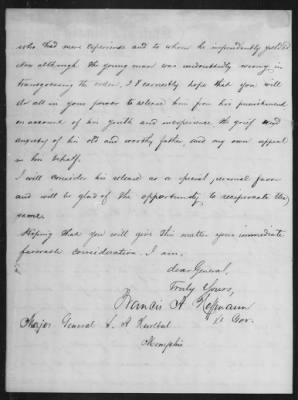 who had more experience and to whom he imprudently yielded
Now although the young man was undoubtedly wrong in
transgressing the orders, I earnestly hope that you will
do all in your power to release him from his punishment
on account of his youth and inexperience, the grief and
anxiety of his old and worthy father, and my own appeal
in his behalf.
I will consider his release as a special personal favor
and will be glad of the opportunity to reciprocate the
same.
Hoping that you will give this matter your immediate
favorable consideration. I am.
dear General,
Truly Yours,
Francis A Hoffmann
Lt Gov.
Major General S. A Hurlbut
Memphis